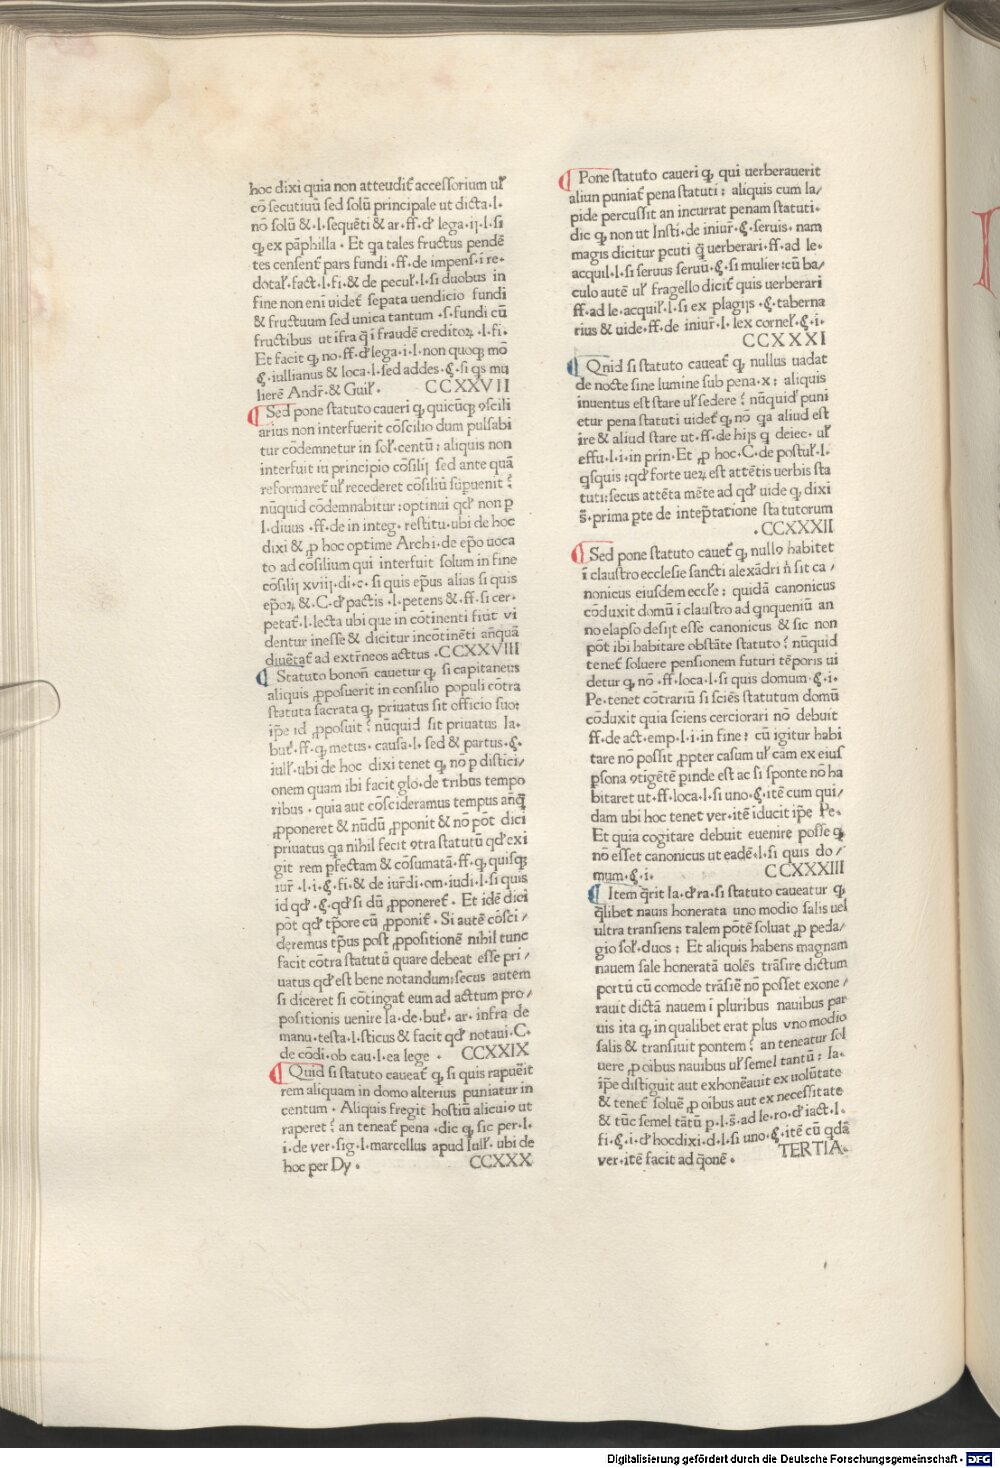 hoc dixi quia non atteudit᷑ accessorium ul᷑
cõ secutiuũ sed solũ principale ut dicta·l·
nõ solũ & ·l·sequẽti & ar·ff·d᷑ lega·ij·l·si
ꝙ ex pãphilla · Et qa tales fructus pendẽ
tes censent᷑ pars fundi ·ff·de impens·ĩ re·
dotal᷑·fact·l·fi·& de pecul᷑·l·si duobus in
fine non eni uidet᷑ sepata uendicio fundi
& fructuum sed unica tantum ·s·fundi cũ
fructibus ut ifra q̃ i fraudẽ creditoꝝ ·l·fi·
Et facit ꝙ no·ff·d᷑ lega·i·l·non quoqꝫ mõ
·§·iullianus & loca·l·sed addes·§·si qs mu
lierẽ Andr᷑·& Guil᷑· CCXXVII
Sed pone statuto caueri ꝙ quicũqꝫ ꝯscili
arius non interfuerit cõscilio dum pulsabi
tur cõdemnetur in sol᷑·centũ: aliquis non
interfuit iu principio cõsilij sed ante quã
reformaret᷑ ul᷑ recederet cõsiliũ sup̃uenit?
nũquid cõdemnabitur:optinui qd᷑ non p
l·diuus ·ff·de in integ·restitu·ubi de hoc
dixi & ꝓ hoc optime Archi·de ep̃o uoca
to ad cõsilium qui interfuit solum in fine
cõsilij xviij·di·c·si quis ep̃us alias si quis
ep̃oꝝ & C·d᷑ pactis ·l·petens & ff·si cer·
petat᷑·l·lecta ubi que in cõtinenti fiut vi
dentur inesse & dicitur incõtinẽti añquã
diuẽtat᷑ ad extr̃neos acttus ·CCXXVIII
Statuto bonoñ cauetur ꝙ si capitaneus
aliquis ꝓposuerit in consilio populi cõtra
statuta sacrata ꝙ priuatus sit officio suo:
ip̃e id ꝓposuit? nũquid sit priuatus Ia·
but᷑·ff·ꝙ metus·causa·l·sed & partus·§·
iul᷑·ubi de hoc dixi tenet ꝙ nõ p distici/
onem quam ibi facit glo·de tribus tempo
ribus · quia aut cõscideramus tempus añq̃
ꝓponeret & nũdũ ꝓponit & nõ põt dici
priuatus qa nihil fecit ꝯtra statutũ qd᷑ exi
git rem pfectam & cõsumatã·ff·ꝙ quisqꝫ
iur᷑ ·l·i·§·fi·& de iur᷑di·om·iudi·l·si quis
id qd᷑·§·qd᷑ si dũ ꝓponeret᷑ · Et idẽ dici
põt qd᷑ tp̃ore cũ ꝓponit᷑· Si autẽ cõsci/
deremus tp̃us post ꝓpositionẽ nihil tunc
facit cõtra statutũ quare debeat esse pri/
uatus qd᷑ est bene notandum:secus autem
si diceret si cõtingat᷑ eum ad acttum pro/
positionis uenire Ia·de·but᷑·ar·infra de
manu·testa·l·sticus & facit qd᷑ notaui·C·
de cõdi·ob cau·l·ea lege · CCXXIX
Quid si statuto caueat᷑ ꝙ si quis rapuẽit
rem aliquam in domo alterius puniatur in
centum · Aliquis fregit hostiũ alicuiꝯ ut
raperet? an teneat᷑ pena ·dic ꝙ sic per·l·
i·de ver·sig·l·marcellus apud Iul᷑·ubi de
hoc per Dy· CCXXX
Pone statuto caueri ꝙ qui uerberauerit
aliun puniat᷑ pena statuti: aliquis cum la/
pide percussit an incurrat penam statuti·
dic ꝙ non ut Insti·de iniur᷑·§·seruis·nam
magis dicitur pcuti q̃ uerberari·ff·ad le·
acquil·l·si seruus seruũ·§·si mulier:cũ ba/
culo autẽ ul᷑ fragello dicit᷑ quis uerberari
ff·ad le·acquil᷑·l·si ex plagijs ·§·taberna
rius & uide·ff·de iniur᷑·l·lex cornel᷑·§·i·
CCXXXI
Qnid si statuto caueat᷑ ꝙ nullus uadat
de nocte sine lumine sub pena·x: aliquis
inuentus est stare ul᷑ sedere? nũquid puni
etur pena statuti uidet᷑ ꝙ nõ qa aliud est
ire & aliud stare ut·ff·de hijs q deiec·ul᷑
effu·l·i·in prin·Et ꝓ hoc·C·de postul᷑·l·
qsquis:qd᷑ forte ueꝝ est attẽtis uerbis sta
tuti:secus attẽta mẽte ad qd᷑ uide ꝙ dixi
s̃·prima pte de intep̃tatione sta tutorum
·CCXXXII
Sed pone statuto cauet᷑ ꝙ nullꝯ habitet
ĩ claustro ecclesie sancti alexãdri ñ sit ca/
nonicus eiusdem eccl᷑e: quidã canonicus
cõduxit domũ i claustro ad qnqueniũ an
no elapso desijt esse canonicus & sic non
põt ibi habitare obstãte statuto? nũquid
tenet᷑ soluere pensionem futuri tẽporis ui
detur ꝙ nõ ·ff·loca·l·si quis domum·§·i·
Pe·tenet cõtrariũ si sciẽs statutum domũ
cõduxit quia sciens cerciorari nõ debuit
ff·de act·emp·l·i·in fine: cũ igitur habi
tare nõ possit ꝓpter casum ul᷑ cãm ex eius
psona ꝯtigẽtẽ pinde est ac si sponte nõ ha
bitaret ut·ff·loca·l·si uno·§·itẽ cum qui/
dam ubi hoc tenet ver·itẽ iducit ip̃e Pe·
Et quia cogitare debuit euenire posse ꝙ
nõ esset canonicus ut eadẽ·l·si quis do/
mum·§·i· CCXXXIII
Item q̃rit Ia·d᷑ ra·si statuto caueatur ꝙ
q̃libet nauis honerata uno modio salis uel
ultra transiens talem põtẽ soluat ꝓ peda/
gio sol᷑·duos: Et aliquis habens magnam
nauem sale honeratã uolẽs trãsire dictum
portũ cũ comode trãsiẽ nõ posset exone/
rauit dictã nauem i pluribus nauibus par
uis ita ꝙ in qualibet erat plus vno modio
salis & transiuit pontem? an teneatur sol
uere ꝓ oibus nauibus ul᷑ semel tantũ: Ia·
ip̃e distiguit aut exhonẽauit ex uolũtate
& tenet᷑ soluẽ ꝓ oibus aut ex necessitate
& tũc semel tãtũ p·l·s̃·ad le·ro·d᷑ iact·l·
fi·§·i·d᷑ hocdixi·d·l·si uno·§·itẽ cũ qdã
ver·itẽ facit ad q̃onẽ· TERTIA·
Digitalisierung gefördert durch die Deutsche Forschungsgemeinschaft - DFG